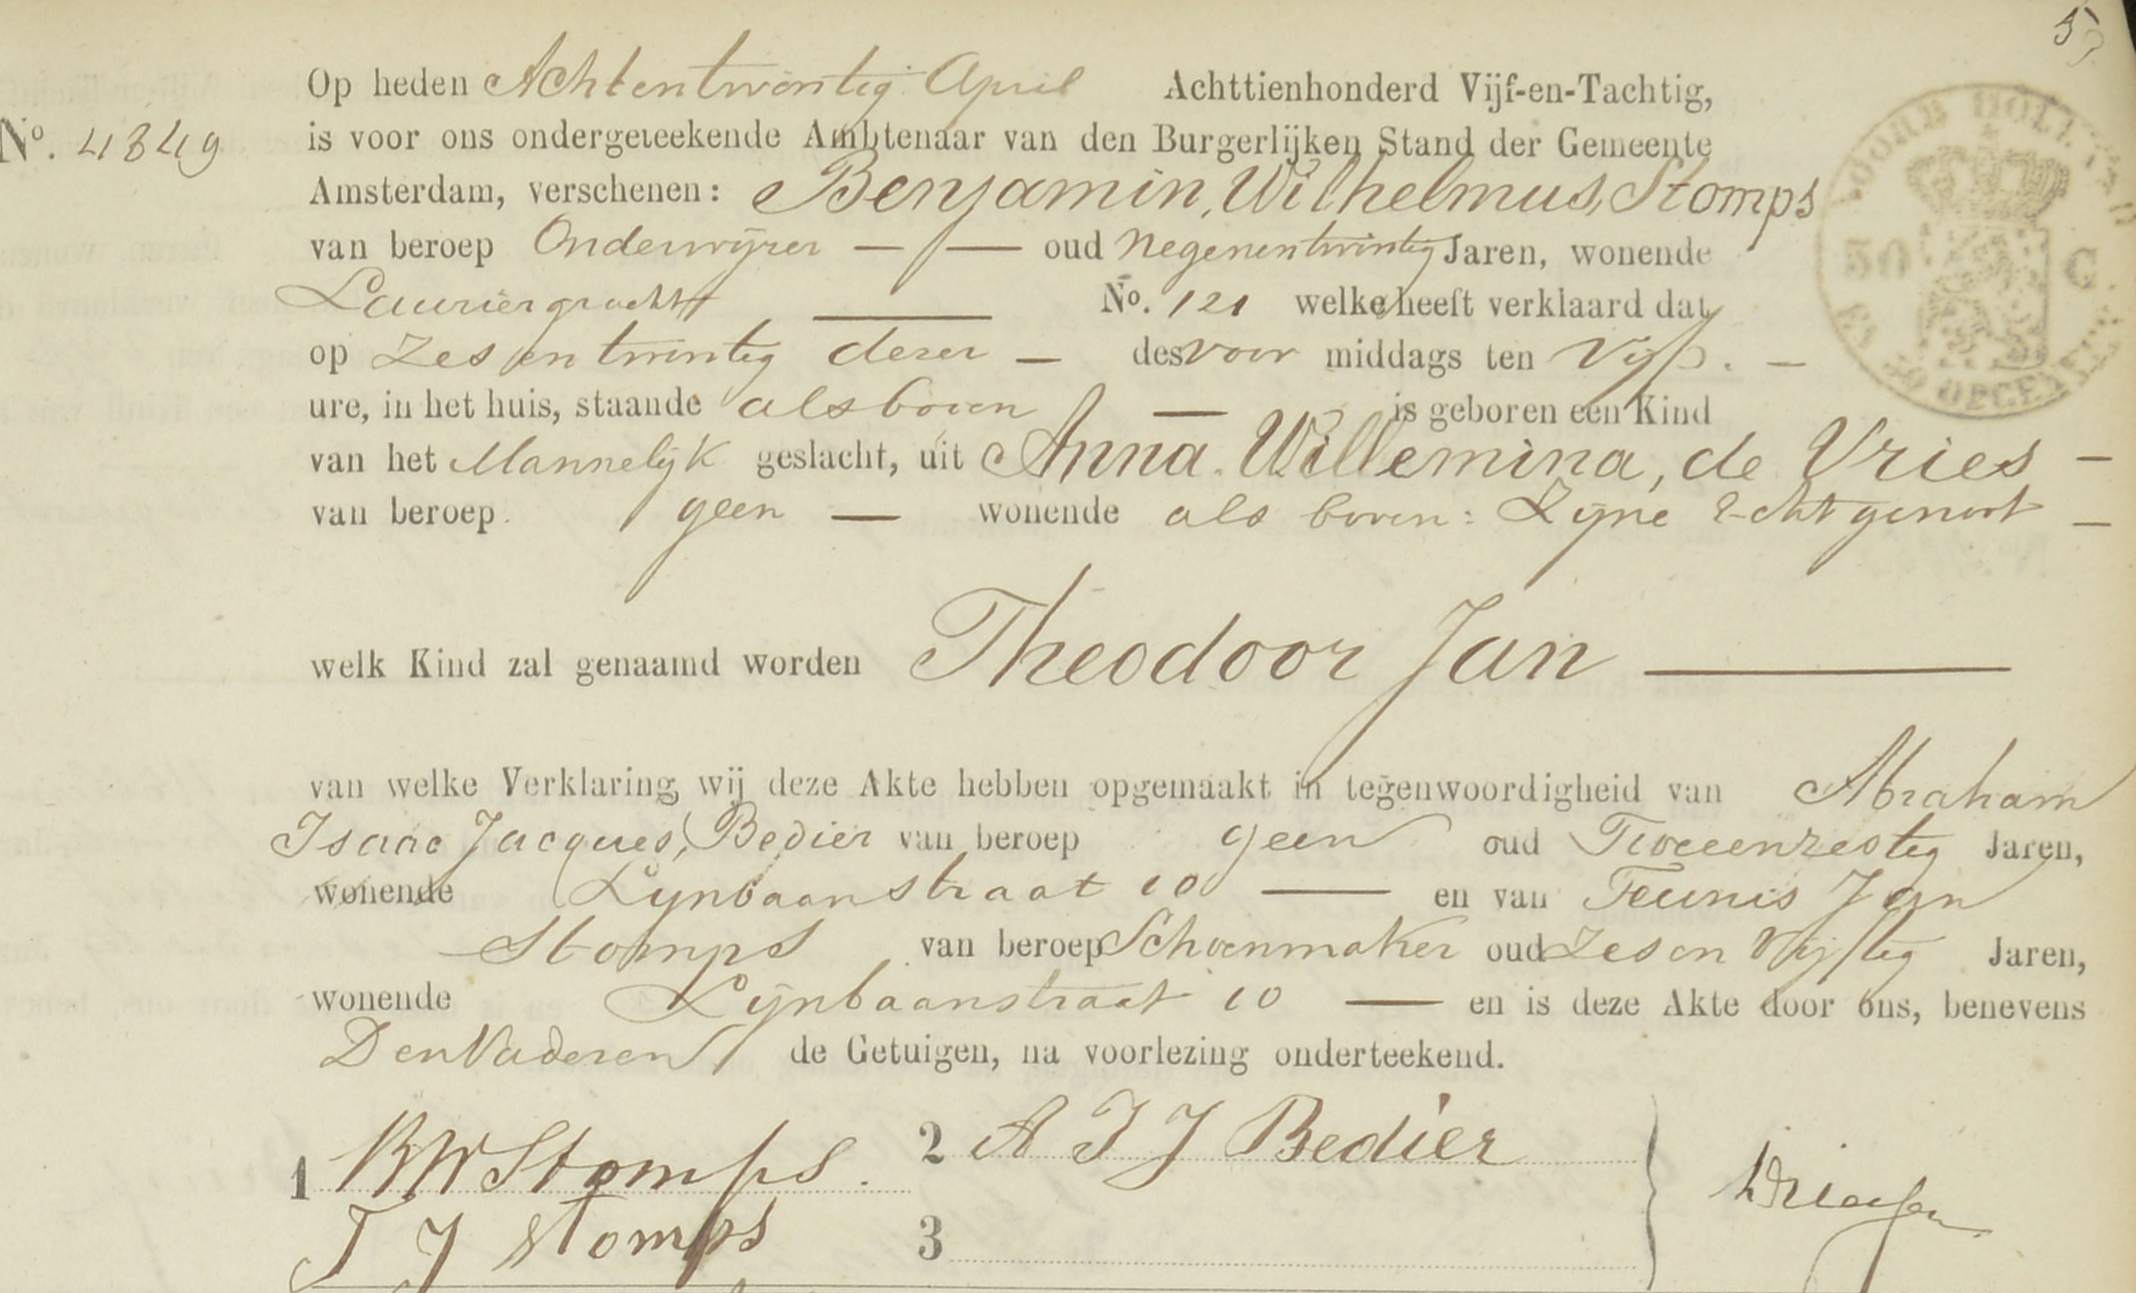 Op heden Achtentwintig April Achttienhonderd Vijf-en-Tachtig,
No. 4849 is voor ons ondergeteekende Ambtenaar van den Burgerlijken Stand der Gemeente
Amsterdam, verschenen: Benjamin, Wilhelmus, Stomps
van beroep Onderwijzer — oud Negenentwintig Jaren, wonende
Lauriergracht — No. 121 welke heeft verklaard dat
op Zes en twintig dezer — des voor middags ten Vijf. —
ure, in het huis, staande als boven — is geboren een Kind
van het Mannelijk geslacht, uit Anna Willemina, de Vries —
van beroep geen — wonende als boven: Zijne Echtgenoot —
welk Kind zal genaamd worden Theodoor Jan —
van welke Verklaring wij deze Akte hebben opgemaakt in tegenwoordigheid van Abraham
Isaac Jacques, Bedier van beroep geen oud Tweeenzestig Jaren,
wonende Lijnbaanstraat 10 — en van Teunis Jan
Stomps van beroep Schoenmaker oud Zes en Vijftig Jaren,
wonende Lijnbaanstraat 10 — en is deze Akte door ons, benevens
Den Vader en de Getuigen, na voorlezing onderteekend.
1 BWStomps. 2 A I J Bedier
T J Stomps 3
NOORD HOLLAND
50 C.
EN 30 OPCENTEN